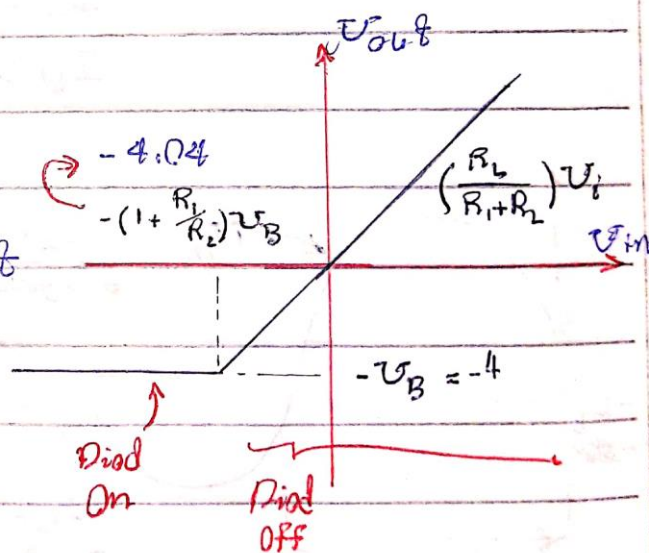 Vout
-4.04
-(1 + R1/R2)VB
(RL/(R1+R2))Vi
Vin
-VB = -4
Diod
On
Diod
Off